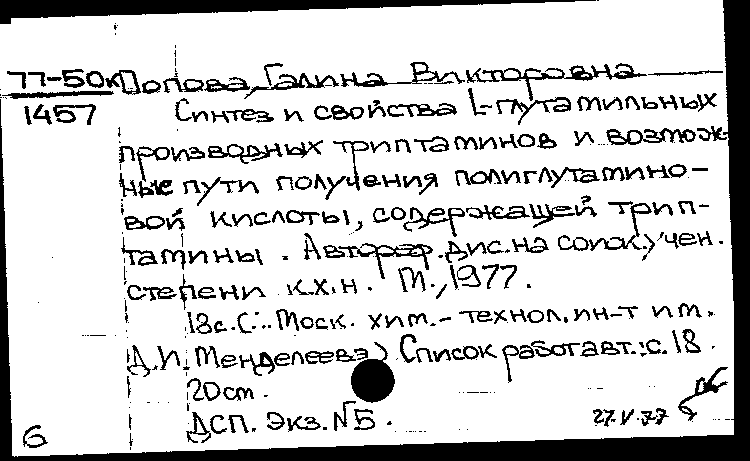 77-50к Попова, Галина Викторовна
1457 Синтез и свойства L-глутамильных
производных триптаминов и возмож-
ные пути получения полиглутамино-
вой кислоты, содержащей трип-
тамины. Автореф. дис. на соиск. учен.
степени к.х.н. М., 1977.
18 с. (Моск. хим.-технол. ин-т им.
Д.И. Менделеева) Список работ авт.: с. 18.
20 cm.
ДСП. Экз. №5.
27.V.77
6